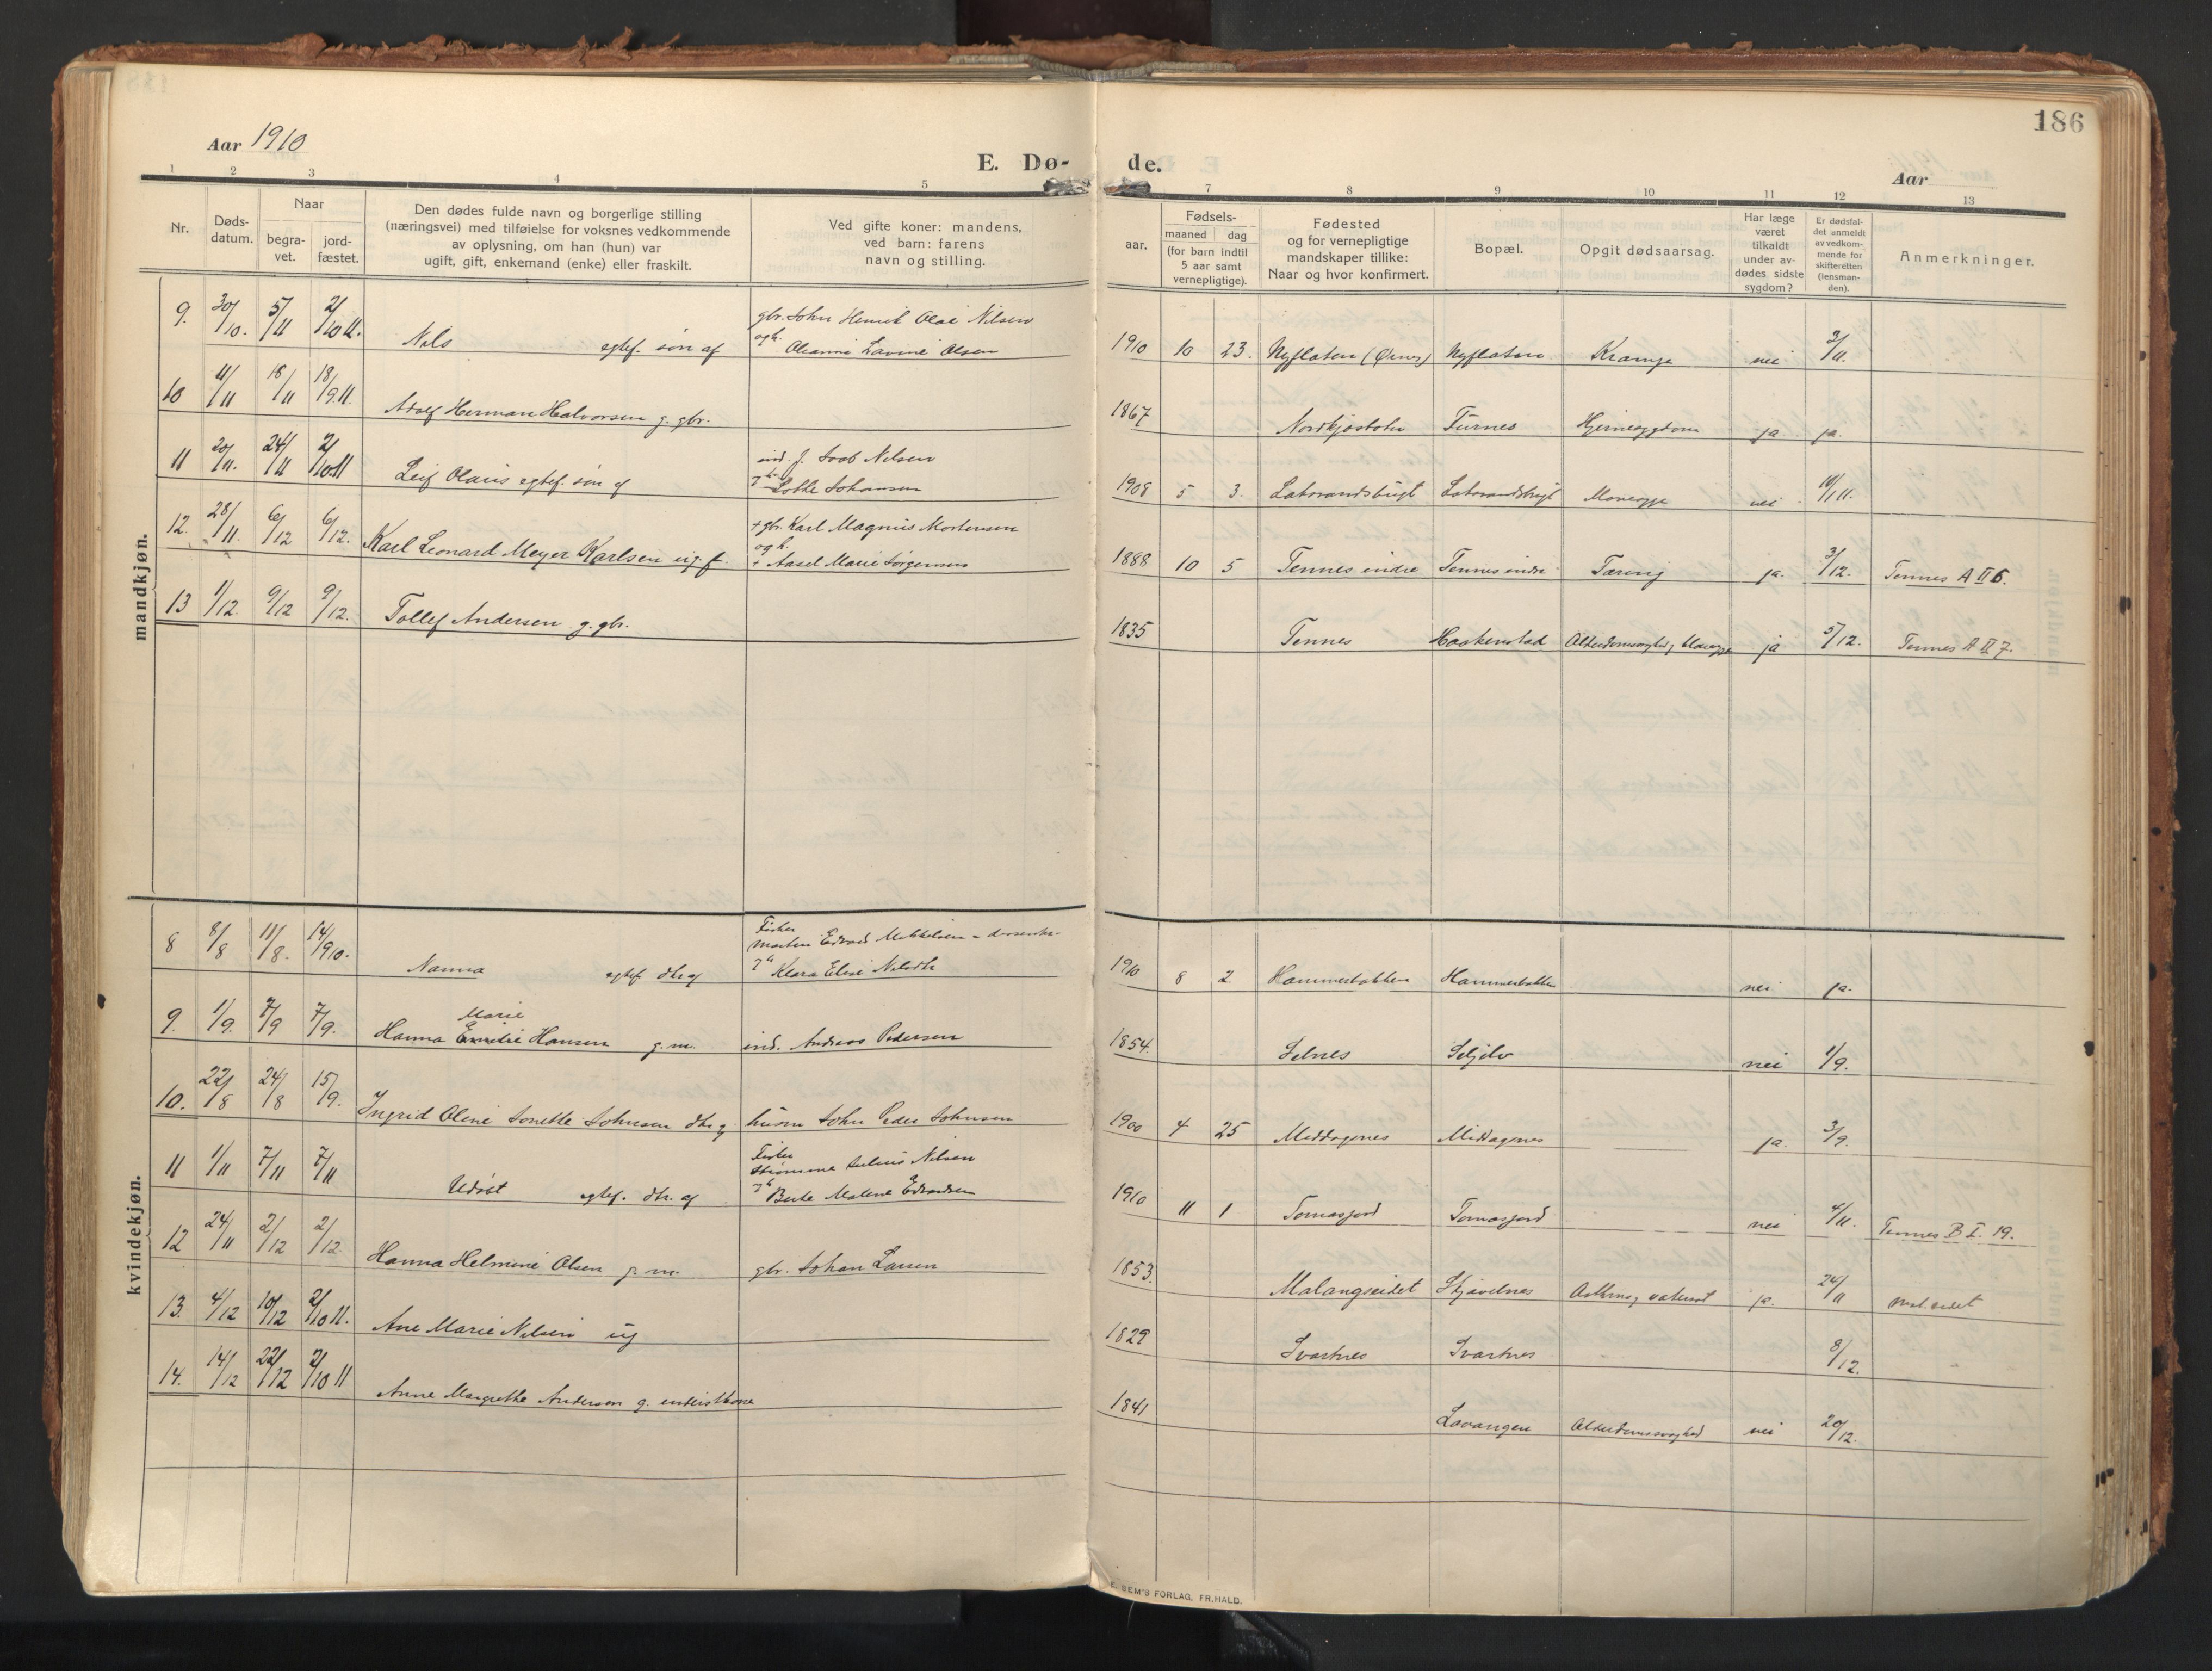 186
Aar 1910
E. Dø-
de.
Aar
1 2 3 4 5
7 8 9 10 11 12 13
Nr.
Døds-
datum.
Naar
begra-
vet.
jord-
fæstet.
Den dødes fulde navn og borgerlige stilling
(næringsvei) med tilføielse for voksnes vedkommende
av oplysning, om han (hun) var
ugift, gift, enkemand (enke) eller fraskilt.
Ved gifte koner: mandens,
ved barn: farens
navn og stilling.
aar.
Fødsels-
maaned dag
(for barn indtil
5 aar samt
vernepligtige).
Fødested
og for vernepligtige
mandskaper tillike:
Naar og hvor konfirmert.
Bopæl.
Opgit dødsaarsag.
Har læge
været
tilkaldt
under av-
dødes sidste
sygdom?
Er dødsfal-
det anmeldt
av vedkom-
mende for
skifteretten
(lensman-
den).
Anmerkninger.
mandkjøn.
9. 30/10. 5/11 2/10 11. Nils egtef. søn af gbr. John Henrik Olai Nilsen
og h. Oleanna Lavine Olsen
1910 10 23. Nyflaten Nyflaten Krampe nei 3/11.
10 11/11 18/11 18/9 11. Adolf Herman Halvorsen g. gbr.
1867 Nordkjosbotn Furnes Hjernesygdom ja ja.
11 20/11. 24/11 2/10 11 Leif Olaus egtef. søn af
Lotte Johansen
1908 5 3. nei
12. 28/11. 6/12 6/12. Karl Leonard Meyer Karlsen ug. f. + gbr. Karl Magnus Mortensen
og h.
+ Aasel Marie Jørgensen
1888 10 5 Tennes indre Tennes indre Tæring ja. 3/12. Tennes A II 6.
13 1/12. 9/12 9/12. Tollef Andersen g. gbr.
1835 Tennes Haakenstad ja 5/12. Tennes A II 7.
kvindekjøn.
8 8/8 11/8. 14/9 10. Nanna egtef. dtr. af Fisker
Edvard Mikkelsen
Klara Elise Nilsdtr
1910 8 2 Hammerbakken Hammerbakken nei ja.
9. 1/9. 7/9 7/9. Marie
Hanna Emilie Hansen g. m. ind. Andreas Pedersen
1854. Selnes Seljelv nei 1/9.
10. 22/8 24/8 15/9. Ingrid Oline Jonette Johnsen dtr. af husm. John Peder Johnsen
1900 4 25 Middagsnes Middagsnes ja. 3/9.
11 1/11 7/11 7/11 Udøbt egtef. dtr. af Fisker
Julius Nilsen
Berte Malene Edvardsen
1910 11 1 Tomasjord Tomasjord nei 4/11. Tennes B I. 19.
12 24/11 2/12 2/12. Hanna Helmine Olsen g. m. gbr. Johan Larsen
1853. Malangseidet Skjavelnes ja. 24/11
13. 4/12 10/12 2/10 11. Ane Marie Nilsen ug
1829 Svartnes Svartnes 8/12.
14. 14/12 22/12 2/10 11 Anne Margrethe Andersen g. inderstkone
1841 Lavangen Alderdomssvaghed nei 20/12.
E. SEM'S FORLAG, FR.HALD.